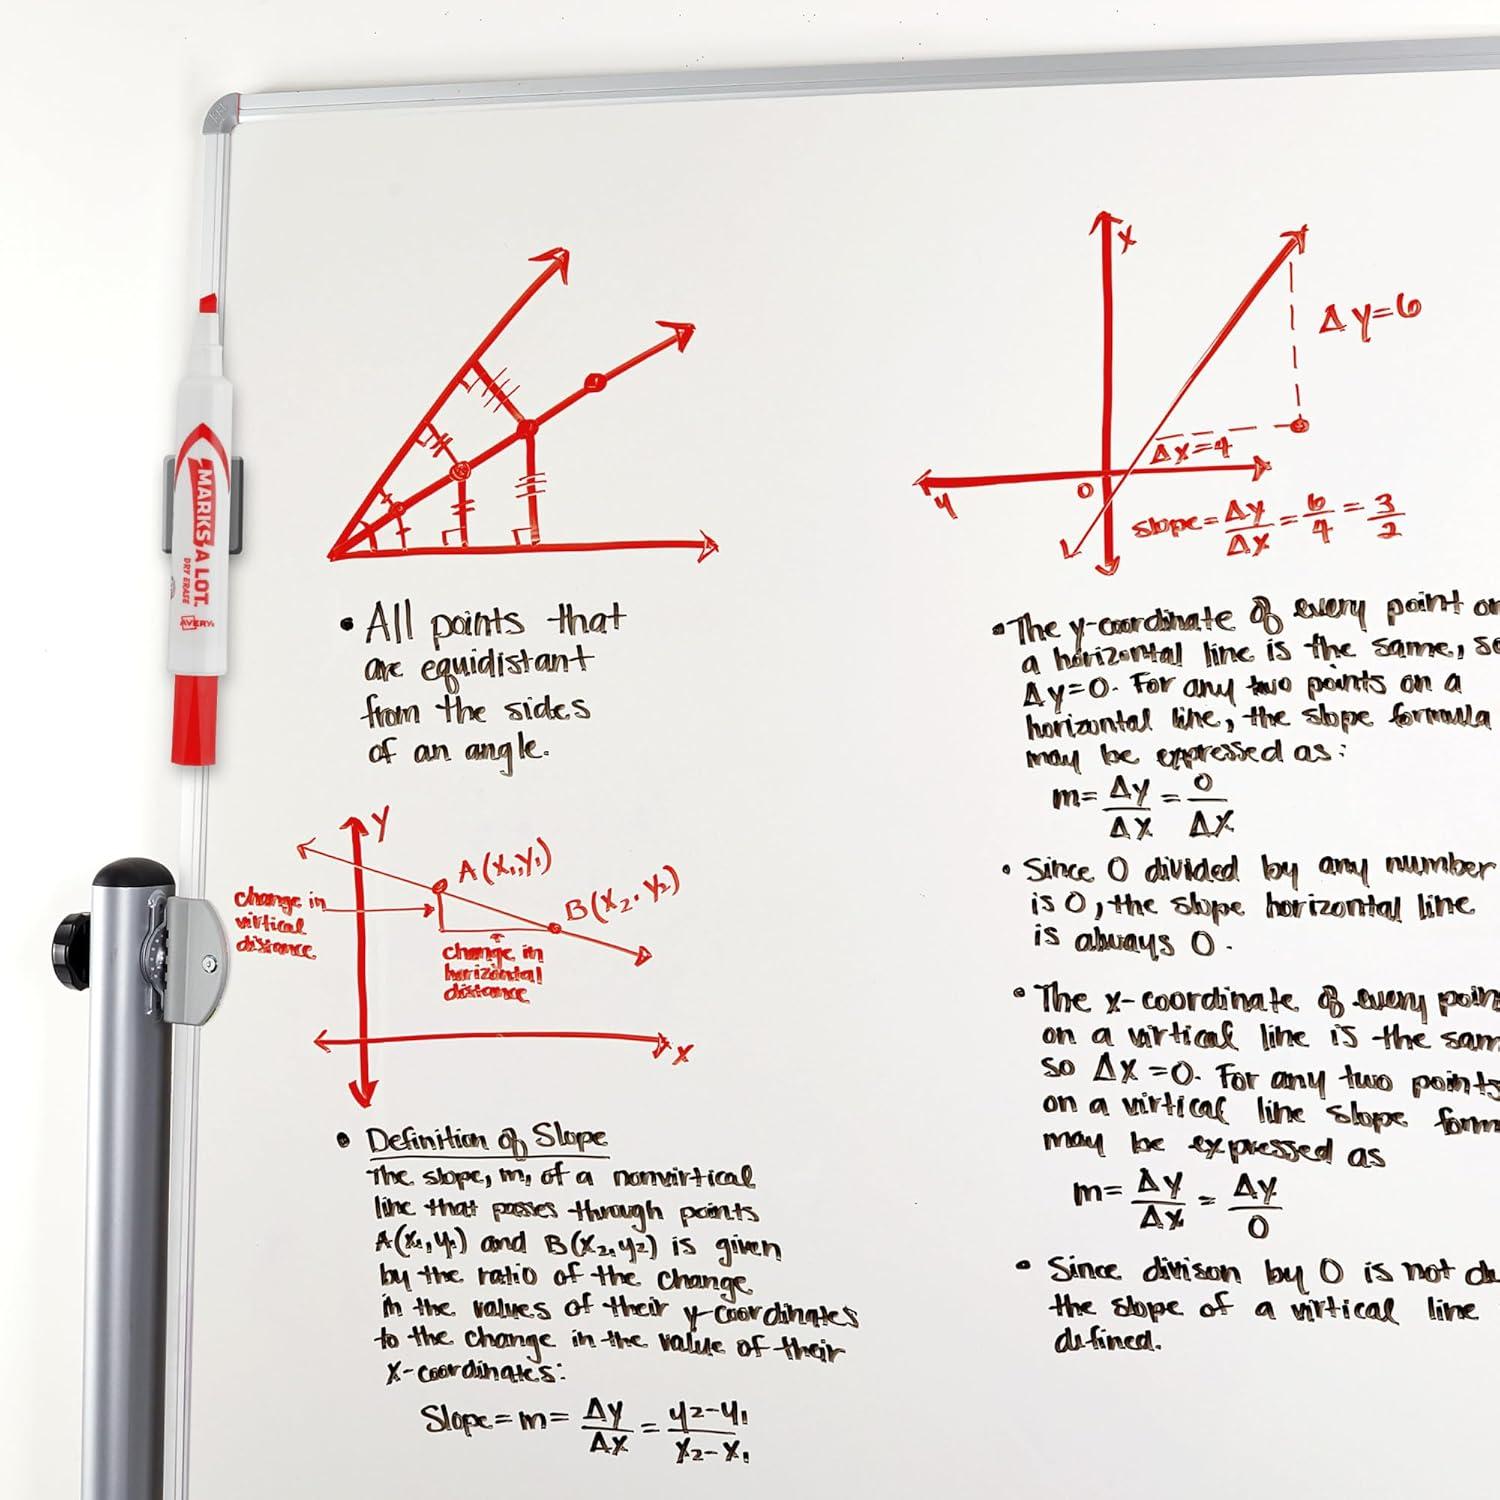 MARKS A LOT.
DRY ERASE
AVERY
• All points that
are equidistant
from the sides
of an angle.
Y
A(x₁,y₁)
B(x₂,y₂)
change in
virtical
distance
change in
horizontal
distance
x
• Definition of Slope
The slope, m, of a nonvirtical
line that passes through points
A(x₁,y₁) and B(x₂,y₂) is given
by the ratio of the change
in the values of their y-coordinates
to the change in the value of their
x-coordinates:
Slope = m = Δy/Δx = y₂-y₁/x₂-x₁
x
Δy=6
Δx=4
y
0
slope = Δy/Δx = 6/4 = 3/2
• The y-coordinate of every point on
a horizontal line is the same, so
Δy=0. For any two points on a
horizontal line, the slope formula
may be expressed as:
m = Δy/Δx = 0/Δx
• Since 0 divided by any number
is 0, the slope horizontal line
is always 0.
• The x-coordinate of every poin
on a virtical line is the sam
so Δx=0. For any two points
on a virtical line slope form
may be expressed as
m = Δy/Δx = Δy/0
• Since divison by 0 is not de
the slope of a virtical line
defined.